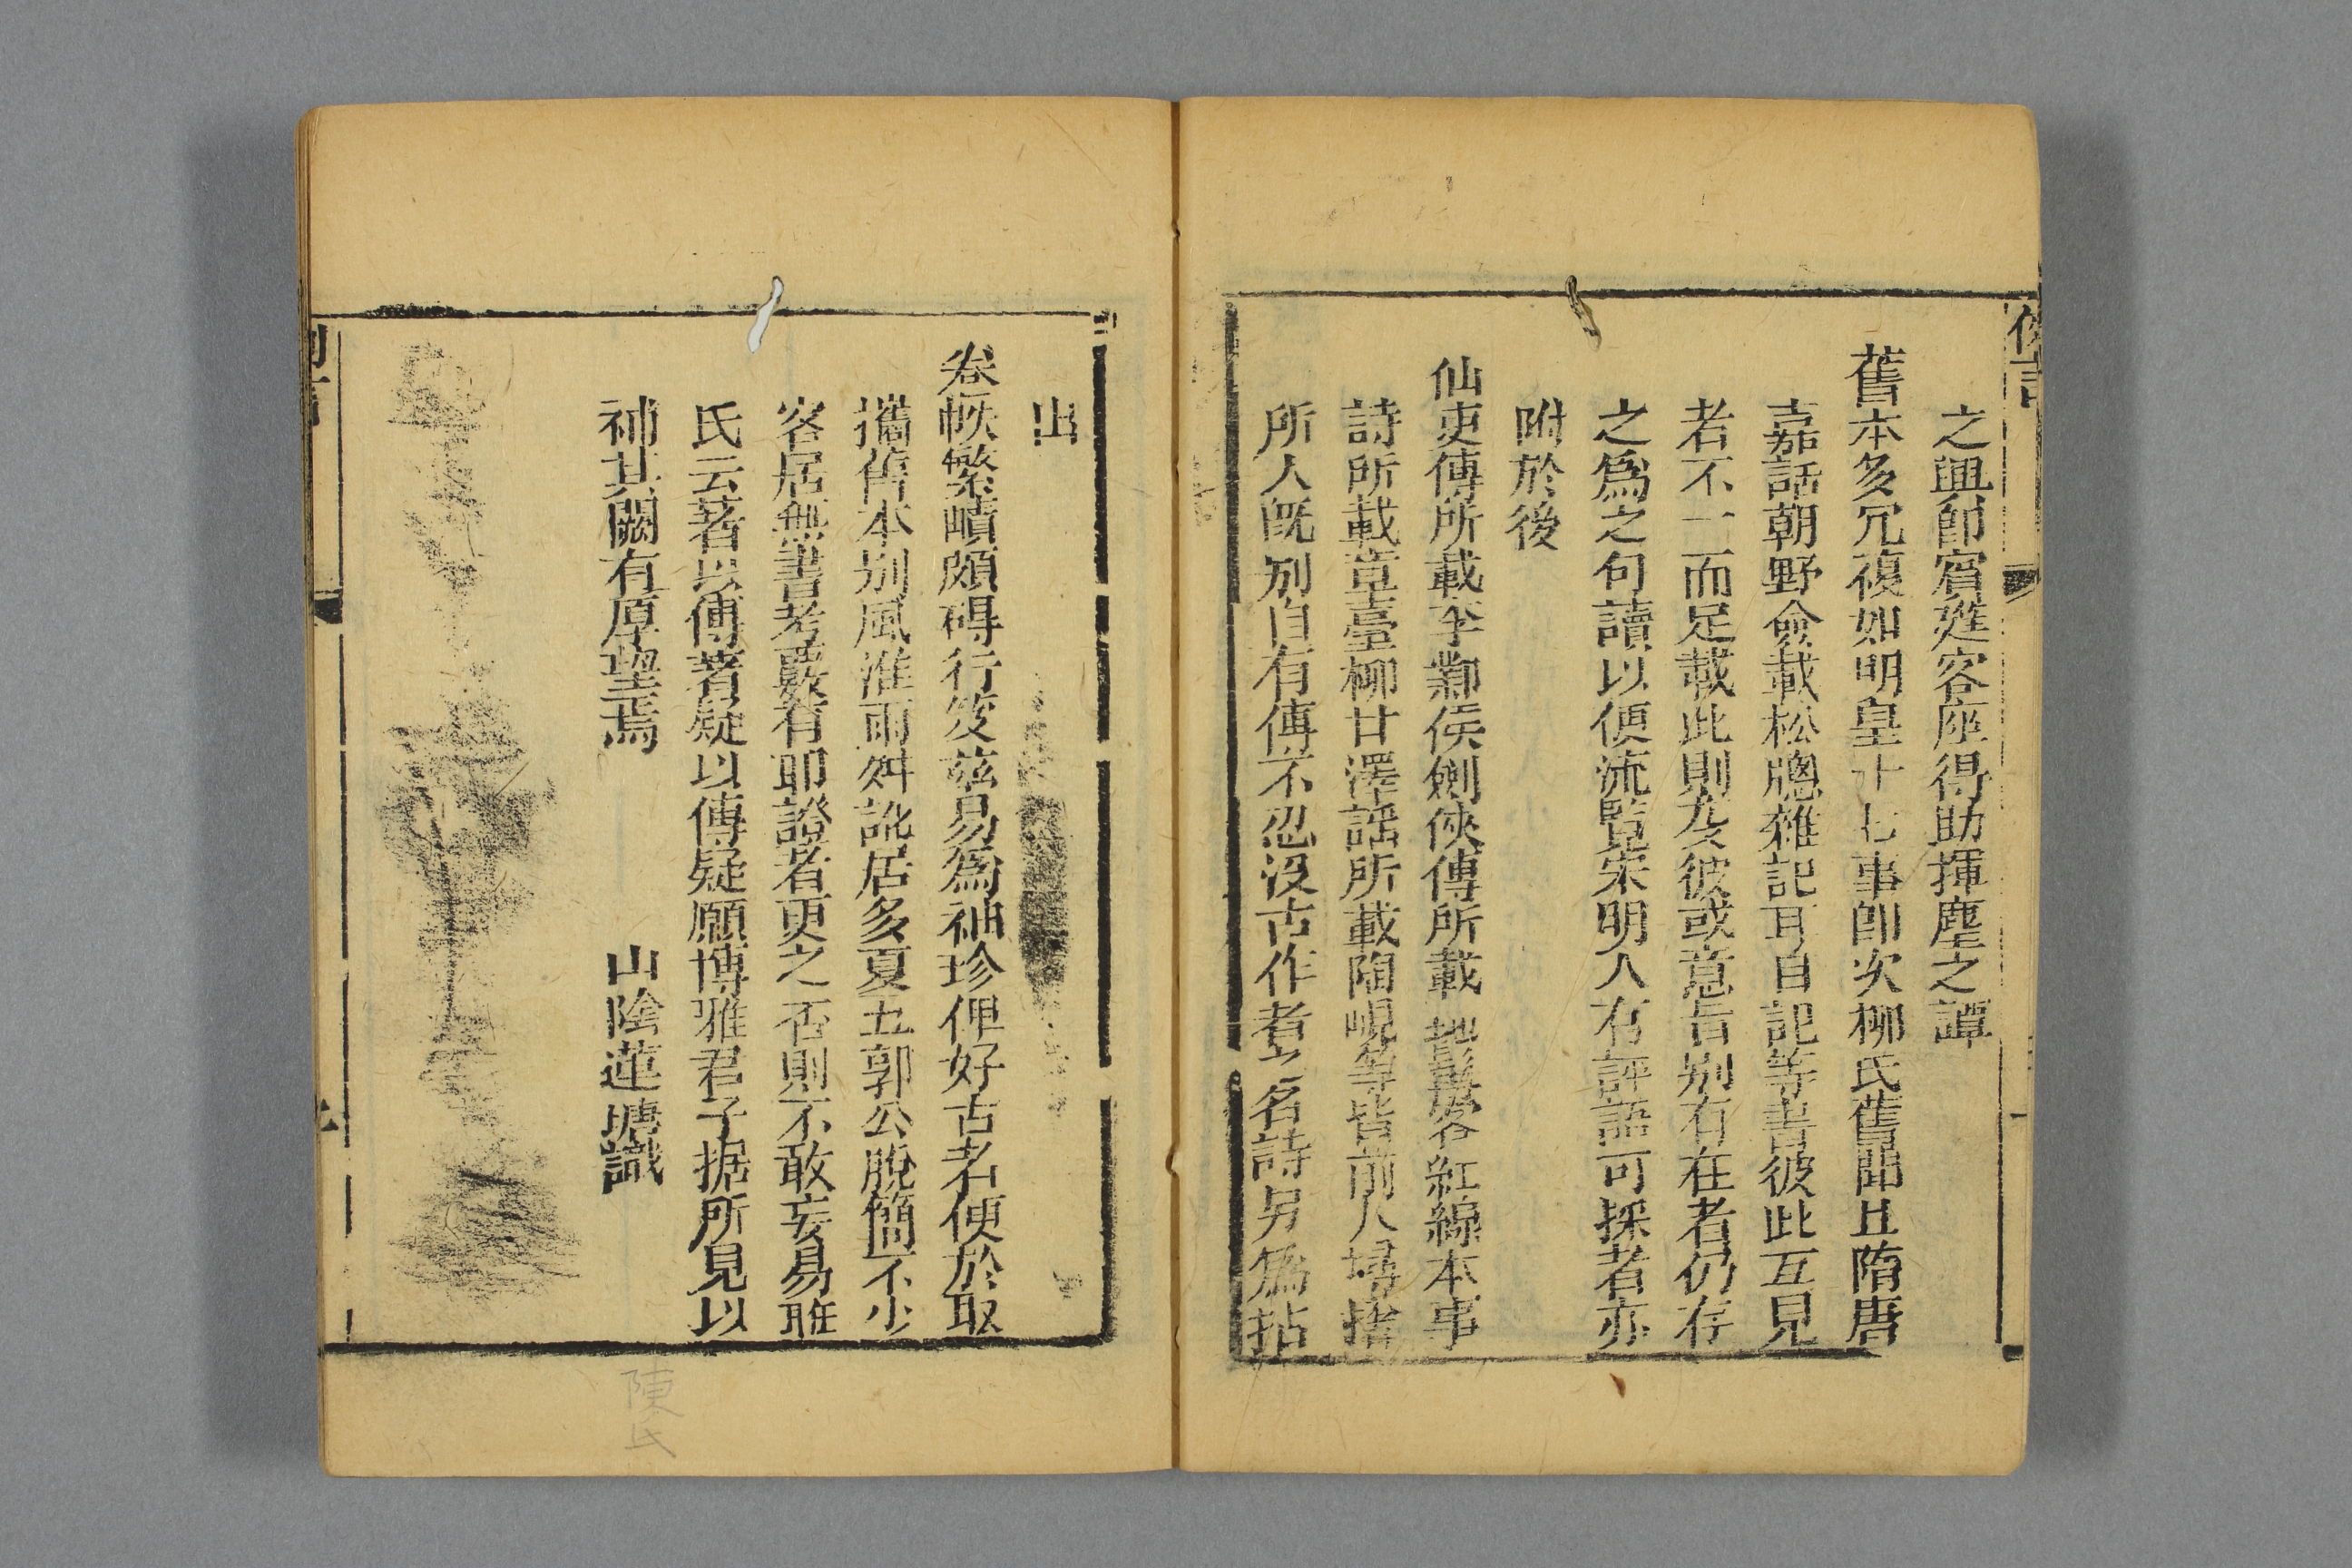 之興卽賓筵客座得助揮塵之譚
舊本多冗複如明皇十七事卽次柳氏舊聞且隋唐
嘉話朝野僉載松牕雜記耳目記等書彼此互見
者不一而足載此則刪彼或意旨别有在者仍存
之爲之句讀以便流覽宋明人有評語可採者亦
附於後
仙吏傳所載李鄴侯劍俠傳所載虬髯客紅線本事
詩所載章臺柳甘澤謡所載陶峴等皆前人撏撦
所人旣别自有傳不忍没古作者之名詩另爲拈
出
卷帙繁賾頗碍行笈茲易爲袖珍俾好古者便於取
攜舊本别風淮雨舛訛居多夏五郭公脫簡不少
客居無書考覈有耶證者更之否則不敢妄易雖
氏云著以傳著疑以傳疑願博雅君子据所見以
補其闕有厚望焉
山陰蓮塘識
陳氏